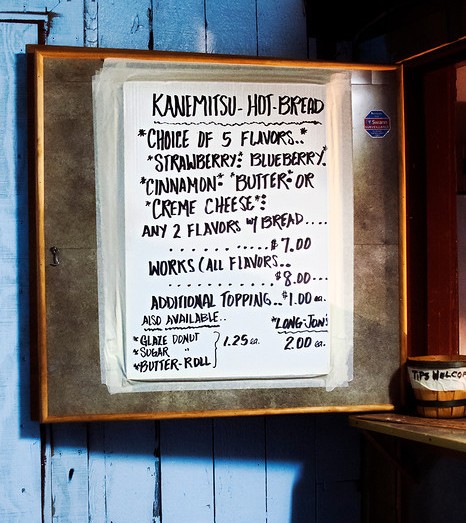 KANEMITSU-HOT-BREAD
*CHOICE OF 5 FLAVORS..
*STRAWBERRY* BLUEBERRY*
*CINNAMON* *BUTTER* OR
*CREME CHEESE*
ANY 2 FLAVORS W/ BREAD....
..........$7.00
WORKS (ALL FLAVORS..
............$8.00...
ADDITIONAL TOPPING..$1.00 ea.
ALSO AVAILABLE..
*GLAZE DONUT
*SUGAR "
*BUTTER-ROLL
1.25 ea.
*LONG-JON*
2.00 ea.
TIPS WELCOM